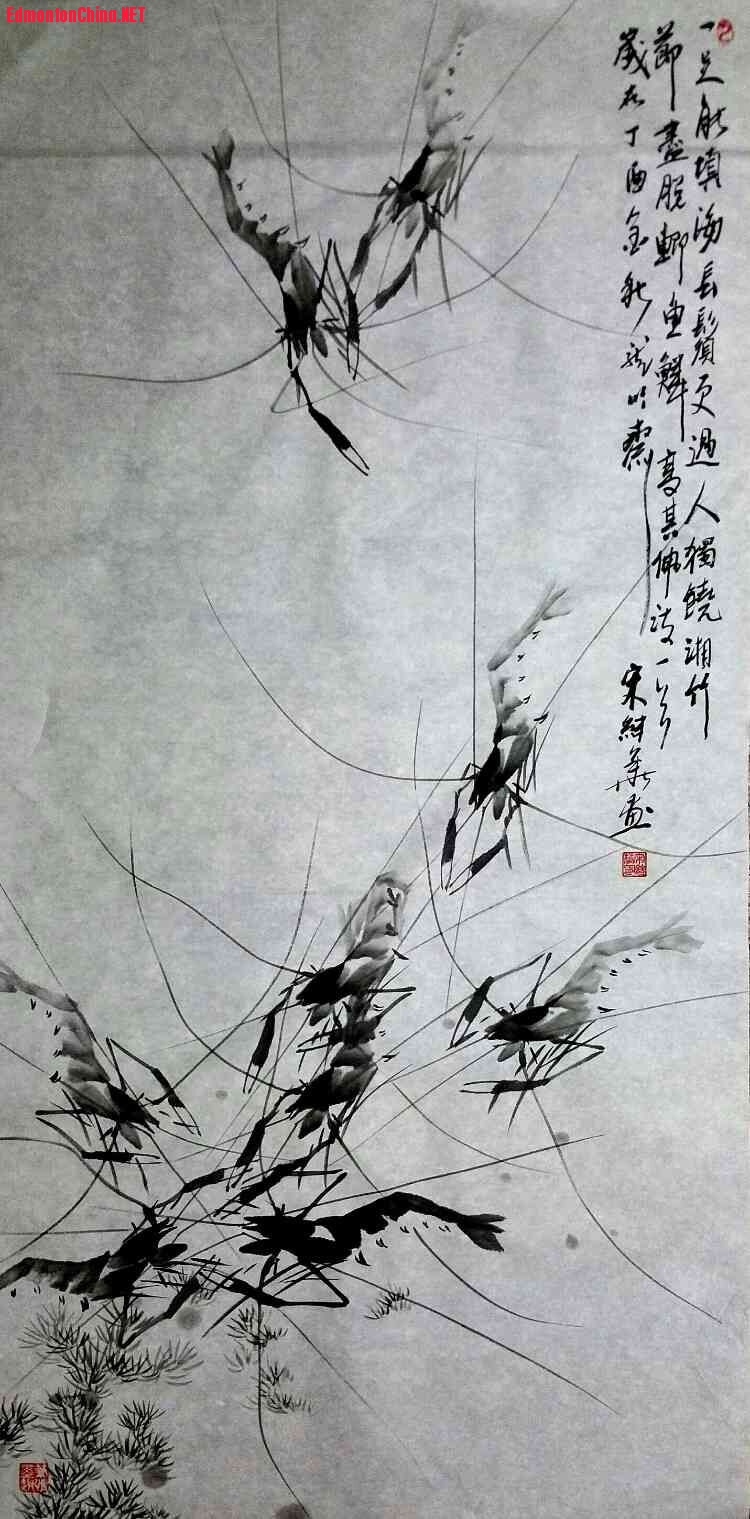 EdmontonChina.NET
一足能填海長鬚更過人獨饒湘竹
節盡脫鯽魚鱗高其佩詩一首
歲在丁酉金秋龍吟齋
宋紂華画